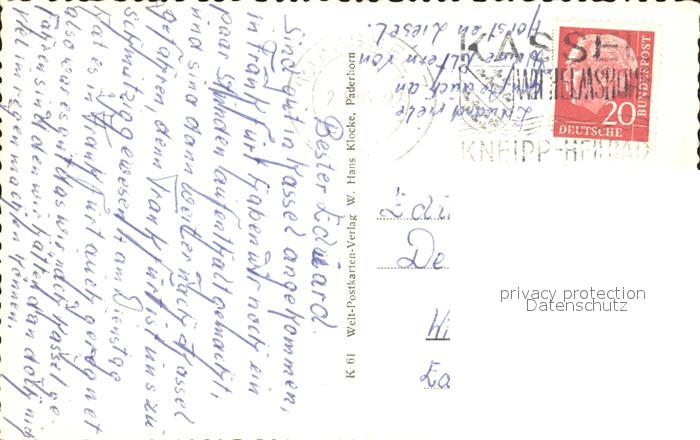 Bester Eduard
Sind gut in Kassel angekommen,
in Frankfurt haben wir noch ein
paar Stunden aufenthalt gemacht,
und sind dann weiter nach Kassel
gefahren, denn Frankfurt ist uns zu
schmutzig gewesen am Dienstag
hat es in Frankfurt auch geregnet
also war es gut das wir nach Kassel ge-
fahren sind denn wir hätten dan doch nicht
viel im regen machen können.
und viele
auch an
deine Eltern von
Horst en Liesel.
K 61 Welt-Postkarten-Verlag W. Hans Klocke, Paderborn
KASSEL
WILHELMSHÖHE
KNEIPP-HEILBAD
DEUTSCHE
BUNDESPOST
20
Edu
De
Wi
privacy protection
Datenschutz